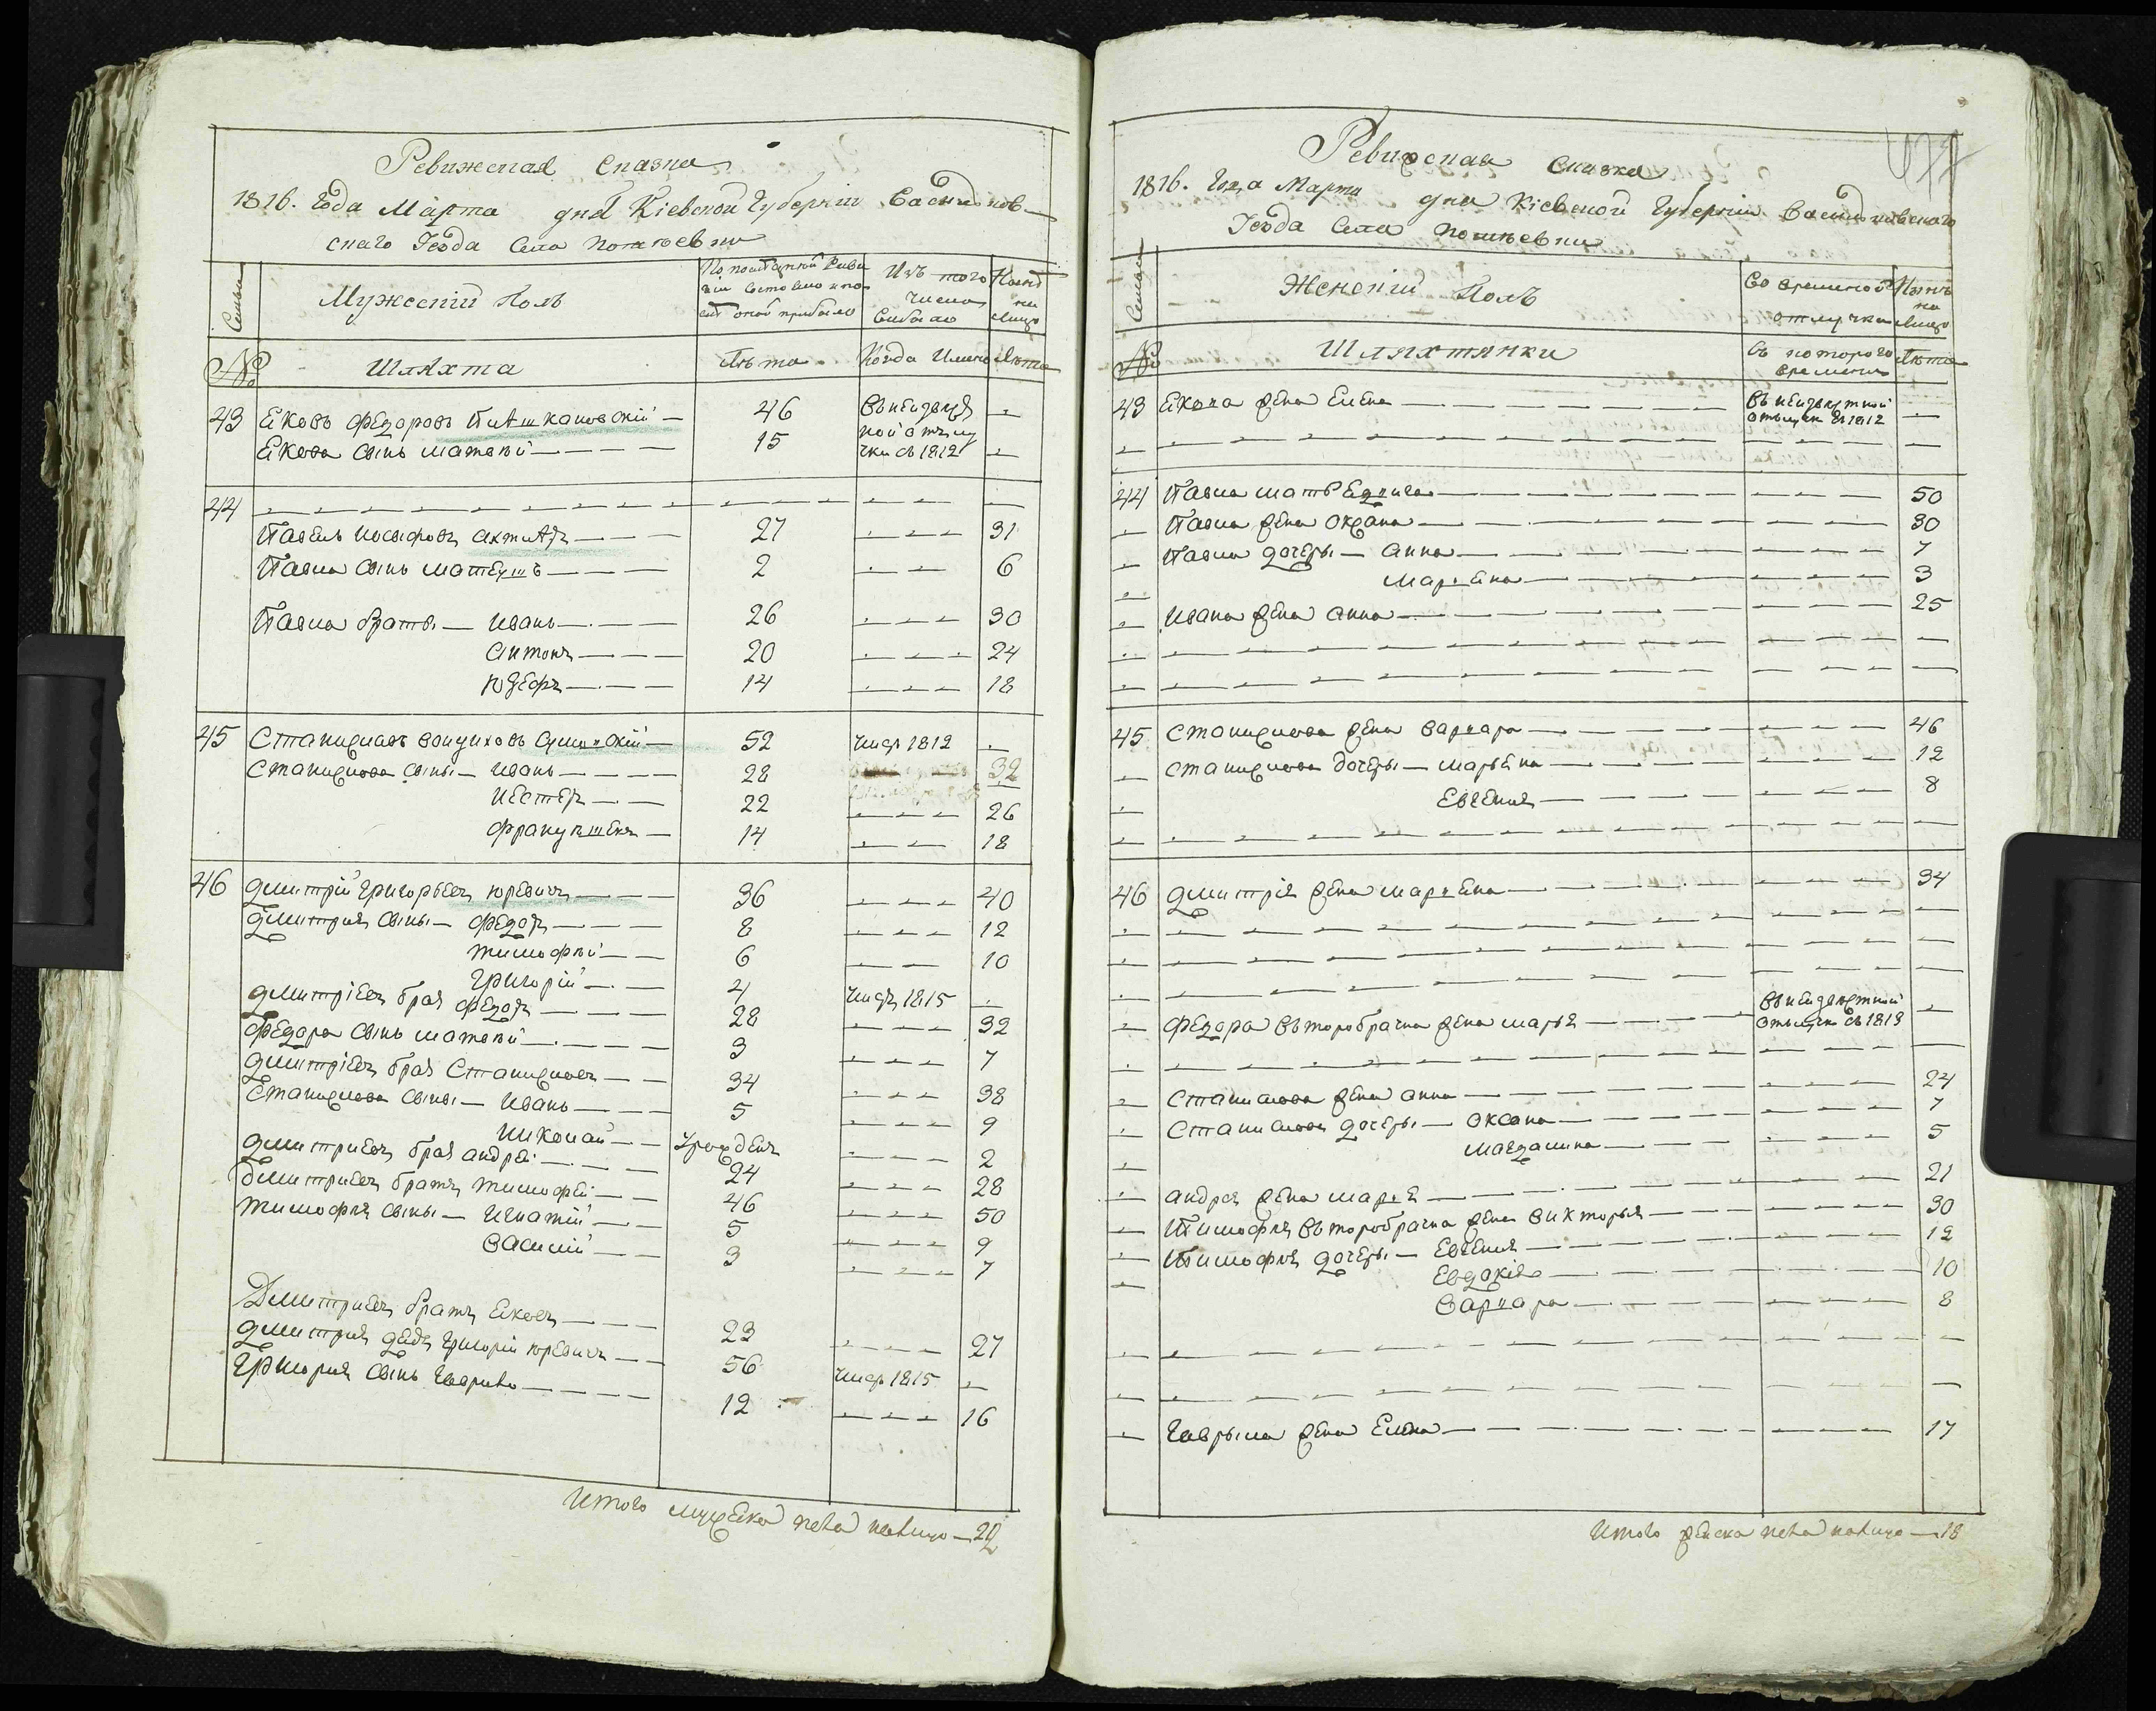 Ревижская сказка
1816. Года Марта дня Кіевской Губерніи Василков-
скаго Уезда Села
Семьи
Мужескій Полъ
По последней Реви
зіи состояло и по
сле оной прибыло
Изъ того
числа
выбыло
Ныне
на
лицо
№
Шляхта
Лѣта
Когда Имено
Лѣта
43 Яковъ Федоровъ
46
въ неизвест
—
Якова сынъ Матвѣй
15
ной отлу
чки съ 1812
—
44
Павелъ Иосифовъ
27
31
Павла сынъ Матеушъ
2
6
Павла браты — Иванъ
26
30
Антонъ
20
24
Юзефъ
14
18
45 Станиславъ Войцеховъ
52
умер 1812
Станислава сыны — Иванъ
28
32
Нестеръ
22
26
Францишекъ
14
18
46 Дмитрій Григорьевъ Юревичъ
36
40
Дмитрия сыны — Федоръ
8
12
Тимофѣй
6
10
Григорій
4
умеръ 1815
Дмитріевъ брат Федоръ
28
32
Федора сынъ Матвѣй
3
7
Дмитріевъ брат Станиславъ
34
38
Станислава сыны — Иванъ
5
9
Николай
урожденъ
2
Дмитриевъ брат Андрей
24
28
Дмитриевъ братъ Тимофей
46
50
Тимофѣя сыны — Игнатій
5
9
Василій
3
7
Дмитриевъ братъ Яковъ
23
27
Дмитрия дедъ Григорій Юревичъ
56
умер 1815
Григория сынъ Гаврило
12
16
Итого мужеска пола налицо — 22
Ревижская сказка
1816. Года Марта дня Кіевской Губерніи Василковскаго
Уезда Села
Семьи
Женскій Полъ
Во временной
отлучке
Ныне
на
лицо
№
Шляхтянки
Съ которого
времени
Лѣта
43 Якова жена Елена
въ неизвестной
отлучке съ 1812
44 Павла мать
50
Павла жена Оксана
30
Павла дочеры — Анна
7
Марьяна
3
Ивана жена Анна
25
45 Станислава жена Варвара
46
Станислава дочеры — Марьяна
12
Евгения
8
46 Дмитрія жена Марьяна
34
Федора второбрачна жена Марья
въ неизвестной
отлучке съ 1813
Станислава жена Анна
24
Станислава дочеры — Оксана
7
Магдалина
5
Андрея жена Марья
21
Тимофѣя второбрачна жена Викторья
30
Тимофѣя дочеры — Евгения
12
Евдокія
10
Варвара
8
Гаврыла жена Елена
17
Итого женска пола налицо — 18